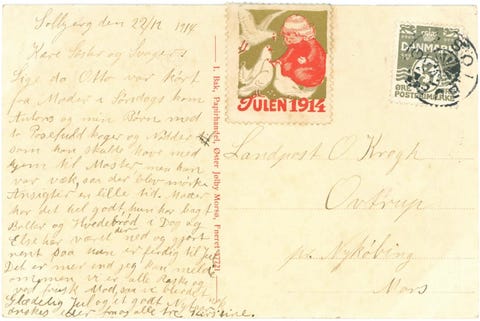 Solbjerg den 22/12 1914
Kære Søster og Svoger!
Lige da Otto var kørt
fra Moder i Søndags kom
Antons og min Børn med
to Posefuld Kager og Nødder
som han skulde have med
hjem til Moster men han
var væk, saa der blev mørke
Ansigter en lille tid. Moder
har det hel godt, hun har bagt
Boller og Hvedebrød i Dag og
Else har været der ned og gjort
rent saa nu er ferdig til Jul
Det er mer end jeg kan melde
om men vi er alle Raske og
ved frisk Mod, saa vi
Glædelig Jul og et godt Nytaar
ønskes eder fra os alle tre
JULEN 1914
DANMARK
ØRE
POSTFRIMÆRKE
I. Bak, Papirhandel, Øster Jølby Morsø, Eneret
Landpost O Krogh
Ovtrup
pr. Nykøbing
Mors